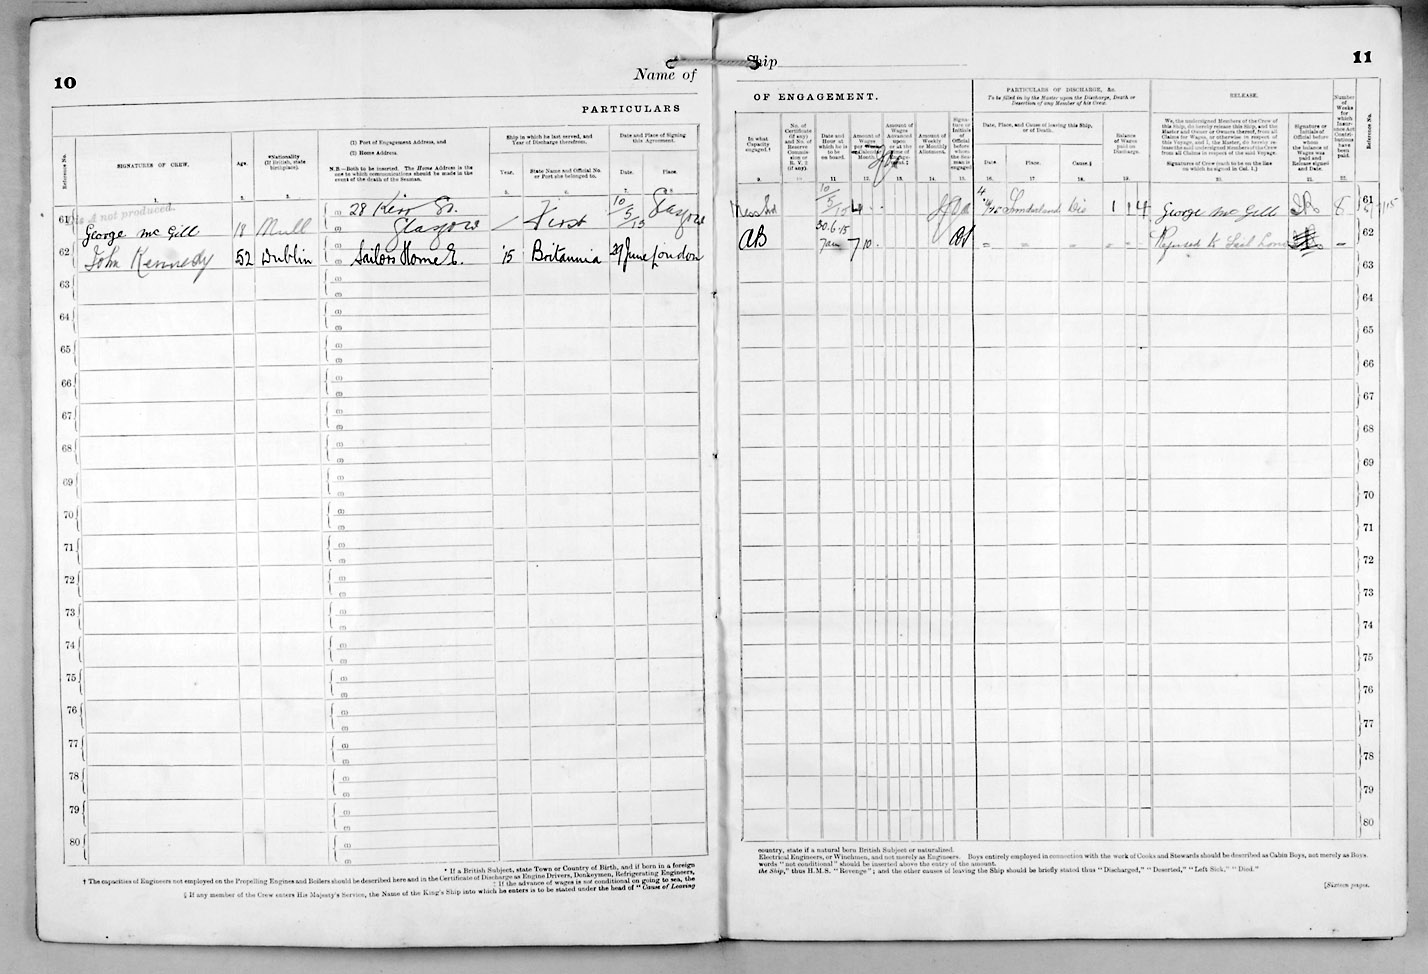 10
Name of
PARTICULARS
Reference No.
SIGNATURES OF CREW.
Age.
*Nationality
(If British, state
birthplace).
(1) Port of Engagement Address, and
(2) Home Address.
N.B.—Both to be inserted. The Home Address is the
one to which communications should be made in the
event of the death of the Seaman.
Ship in which he last served, and
Year of Discharge therefrom.
Year.
State Name and Official No.
or Port she belonged to.
Date and Place of Signing
this Agreement.
Date.
Place.
1.
2.
3.
5.
6.
7.
8.
not produced.
61
George Mc Gill
18
Mull
(1) 28 Kerr St.
(2) Glasgow
First
10/5/15
Glasgow
62
John Kennedy
52
Dublin
(1) Sailors Home E.
'15
Britannia
29 June
London
63
64
65
66
67
68
69
70
71
72
73
74
75
76
77
78
79
80
* If a British Subject, state Town or Country of Birth, and if born in a foreign
† The capacities of Engineers not employed on the Propelling Engines and Boilers should be described here and in the Certificate of Discharge as Engine Drivers, Donkeymen, Refrigerating Engineers,
‡ If the advance of wages is not conditional on going to sea, the
§ If any member of the Crew enters His Majesty's Service, the Name of the King's Ship into which he enters is to be stated under the head of "Cause of Leaving
Ship
11
OF ENGAGEMENT.
PARTICULARS OF DISCHARGE, &c.
To be filled in by the Master upon the Discharge, Death or
Desertion of any Member of his Crew.
RELEASE.
In what
Capacity
engaged.†
No. of
Certificate
(if any)
and No. of
Reserve
Commis-
sion or
R. V. 2
(if any).
Date and
Hour at
which he is
to be
on board.
Amount of
Wages
Amount of
Wages
Advanced
upon
Amount of
Weekly
or Monthly
Allotment.
Signa-
ture or
Initials
of
Official
before
whom
the Sea-
man is
engaged
Date, Place, and Cause of leaving this Ship,
or of Death.
Date.
Place.
Cause.§
Balance
of Wages
paid on
Discharge.
We, the undersigned Members of the Crew of
this Ship, do hereby release this Ship, and the
Master and Owner or Owners thereof, from all
Claims for Wages, or otherwise in respect of
this Voyage, and I, the Master, do hereby re-
lease the said undersigned Members of the Crew
from all Claims in respect of the said Voyage.
Signatures of Crew (each to be on the line
on which he signed in Col. 1.)
Signature or
Initials of
Official before
whom
the balance of
Wages was
paid and
Release signed
and Date.
Number
of
Weeks
for
which
Insur-
ance Act
Contri-
butions
have
been
paid.
Reference No.
9.
11.
12.
13.
14.
15.
16.
17.
18.
19.
20.
21.
22.
10/5/15
4
Sunderland
Dis
1 1 4
George Mc Gill
8
61
AB
30.6.15
7am
7 10
Refused to
62
63
64
65
66
67
68
69
70
71
72
73
74
75
76
77
78
79
80
country, state if a natural born British Subject or naturalized.
Electrical Engineers, or Winchmen, and not merely as Engineers. Boys entirely employed in connection with the work of Cooks and Stewards should be described as Cabin Boys, not merely as Boys.
words "not conditional" should be inserted above the entry of the amount.
the Ship," thus H.M.S. "Revenge"; and the other causes of leaving the Ship should be briefly stated thus "Discharged," "Deserted," "Left Sick," "Died."
[Sixteen pages.